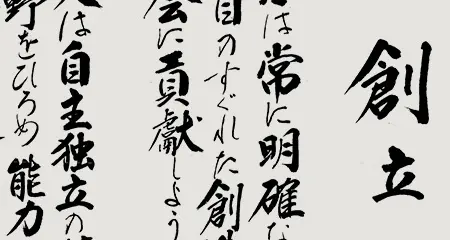 創立
は常に明確な
自のすぐれた創
会に貢献しよう
は自主独立の
野をひろめ能力